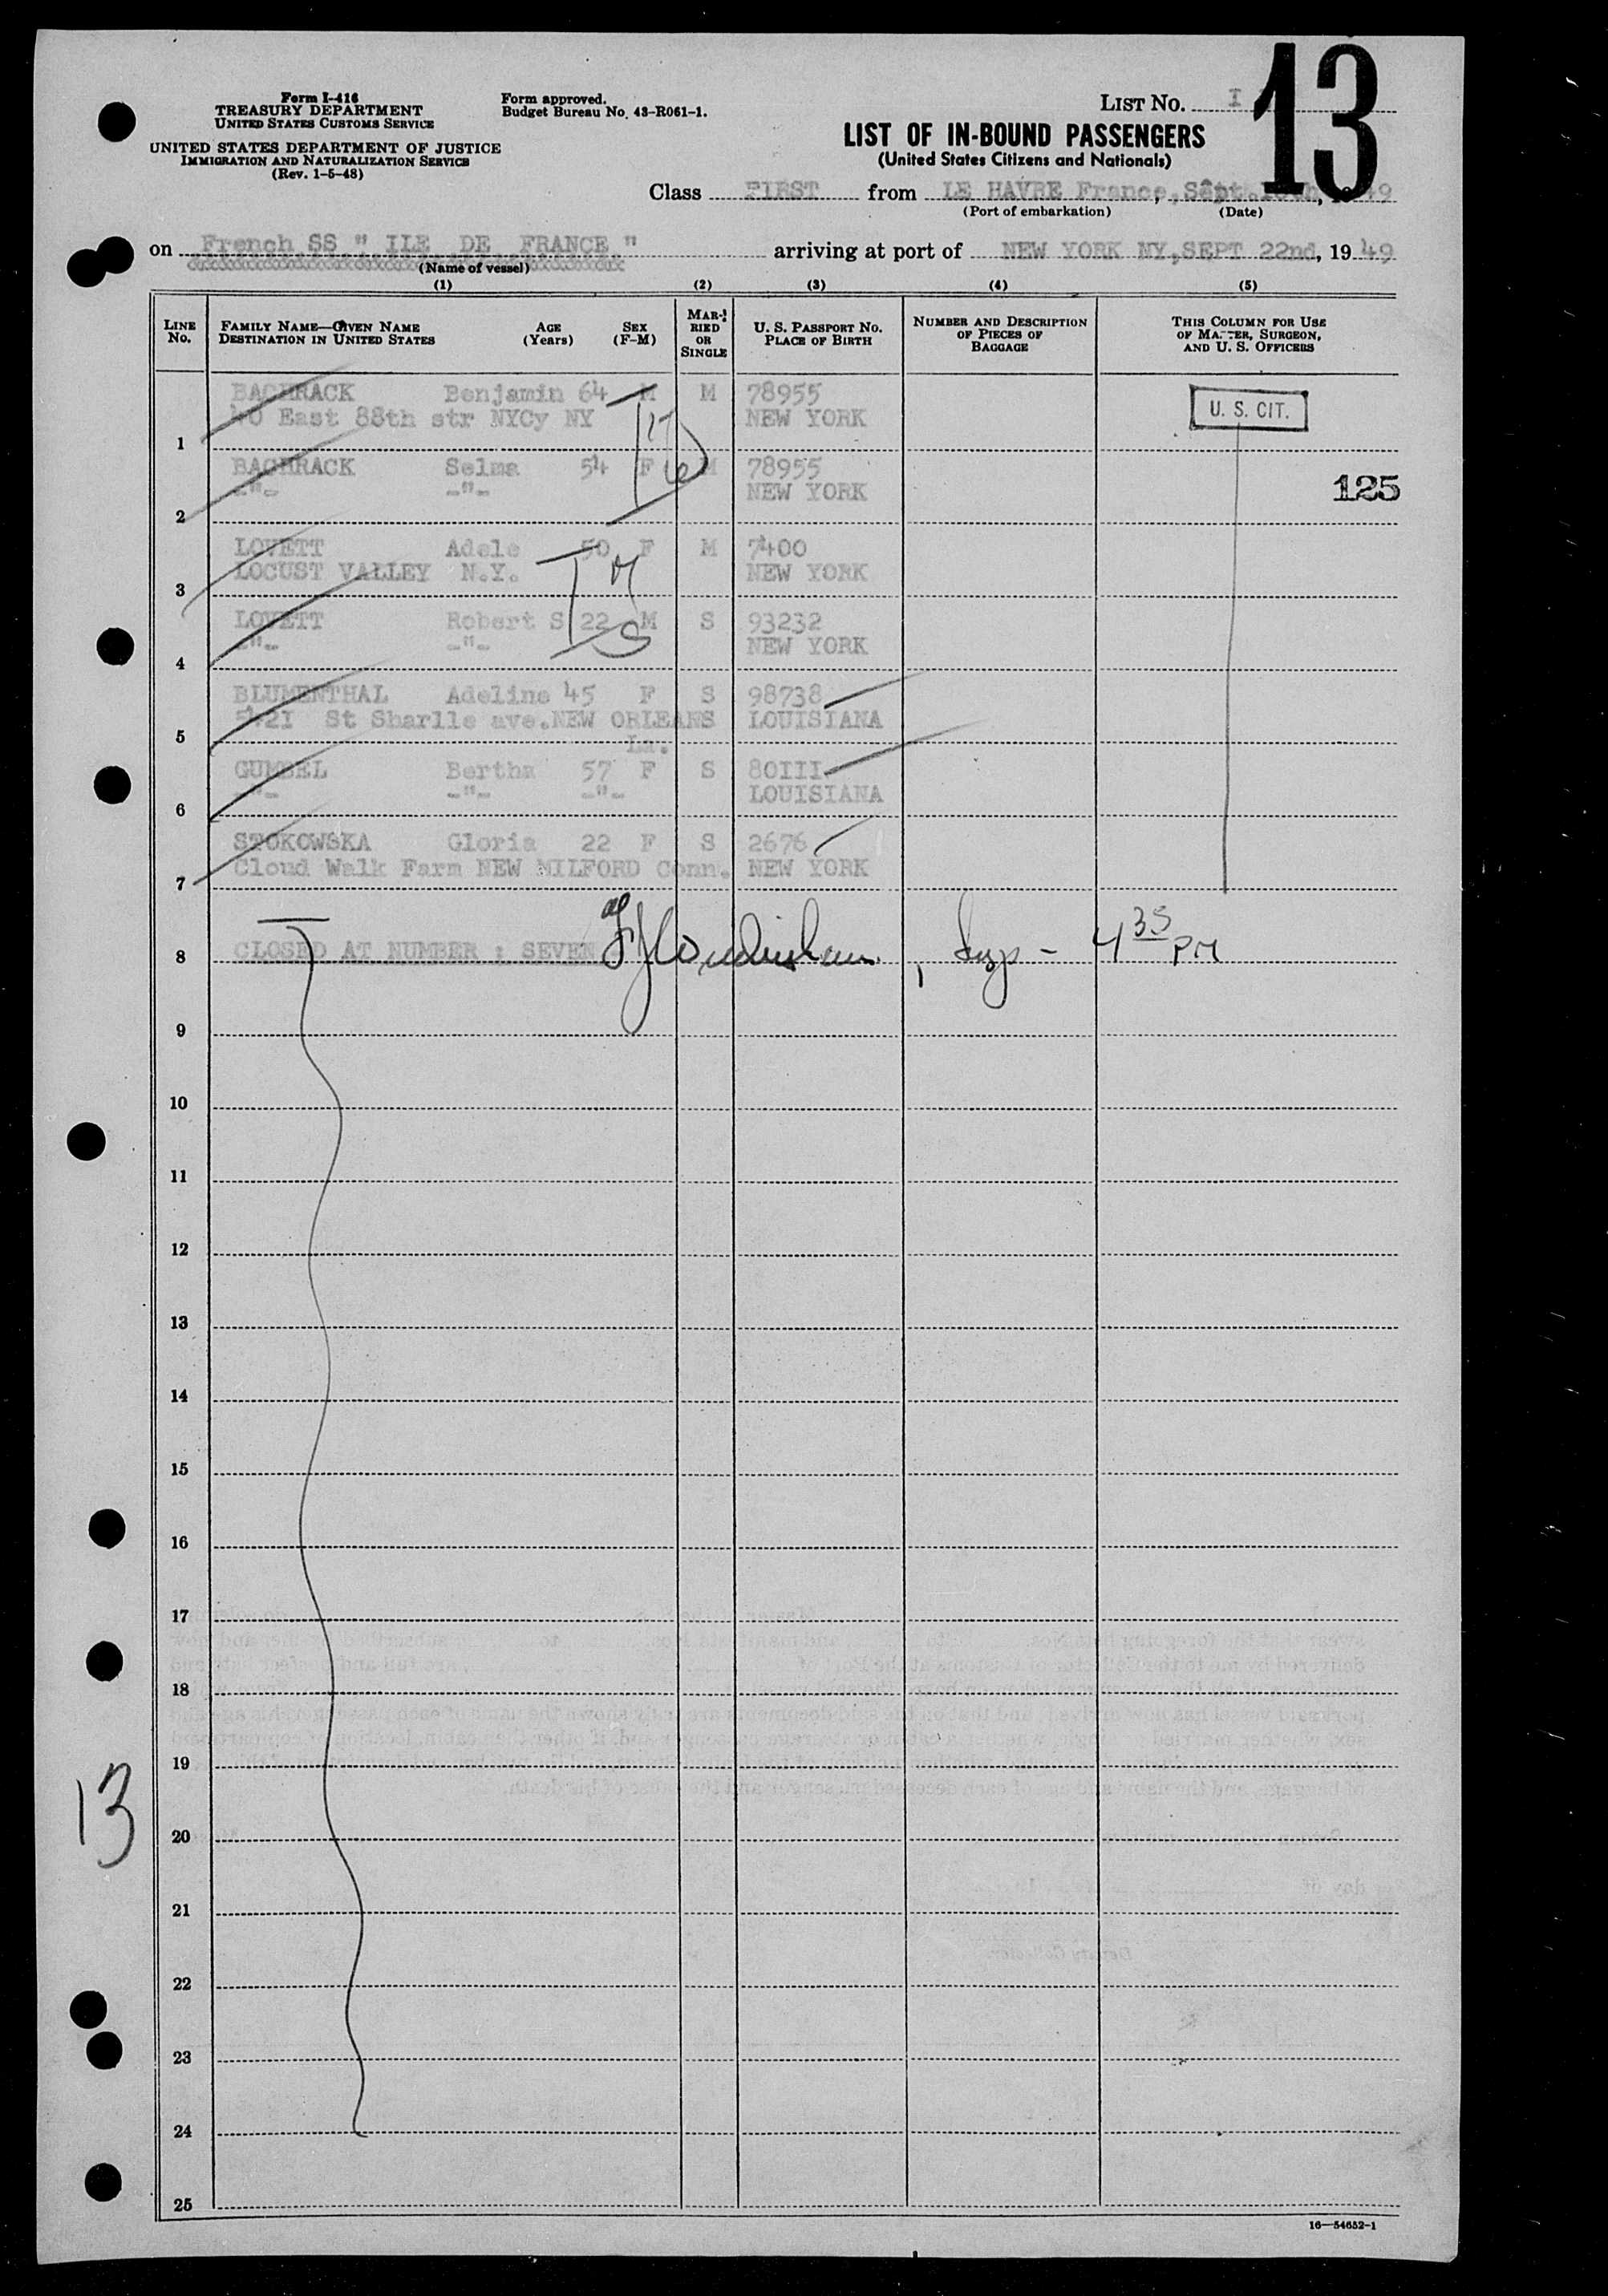 Form I-416
TREASURY DEPARTMENT
UNITED STATES CUSTOMS SERVICE
UNITED STATES DEPARTMENT OF JUSTICE
IMMIGRATION AND NATURALIZATION SERVICE
(Rev. 1-5-48)
Form approved.
Budget Bureau No. 43-R061-1.
LIST NO. I
13
LIST OF IN-BOUND PASSENGERS
(United States Citizens and Nationals)
Class FIRST from LE HAVRE France, Sept. 49
(Port of embarkation) (Date)
on French SS " ILE DE FRANCE " arriving at port of NEW YORK NY, SEPT 22nd, 19 49
(Name of vessel)
(1) (2) (3) (4) (5)
LINE No. FAMILY NAME—GIVEN NAME DESTINATION IN UNITED STATES AGE (Years) SEX (F-M) MARRIED OR SINGLE U. S. PASSPORT NO. PLACE OF BIRTH NUMBER AND DESCRIPTION OF PIECES OF BAGGAGE THIS COLUMN FOR USE OF MASTER, SURGEON, AND U. S. OFFICERS
BACHRACK Benjamin 64 M M 78955 U. S. CIT.
1 40 East 88th str NYCy NY NEW YORK
BACHRACK Selma 54 F M 78955 125
2 -"- -"- NEW YORK
LOVETT Adele 50 F M 7400
3 LOCUST VALLEY N.Y. NEW YORK
LOVETT Robert S 22 M S 93232
4 -"- -"- NEW YORK
BLUMENTHAL Adeline 45 F S 98738
5 5421 St Sharlle ave. NEW ORLEANS LOUISIANA
La.
GUMBEL Bertha 57 F S 80III
6 -"- -"- -"- LOUISIANA
STOKOWSKA Gloria 22 F S 2676
7 Cloud Walk Farm NEW MILFORD Conn. NEW YORK
8 CLOSED AT NUMBER : SEVEN Insp - 4 35 PM
9
10
11
12
13
14
15
16
17
18
19
13
20
21
22
23
24
25
16—54652-1